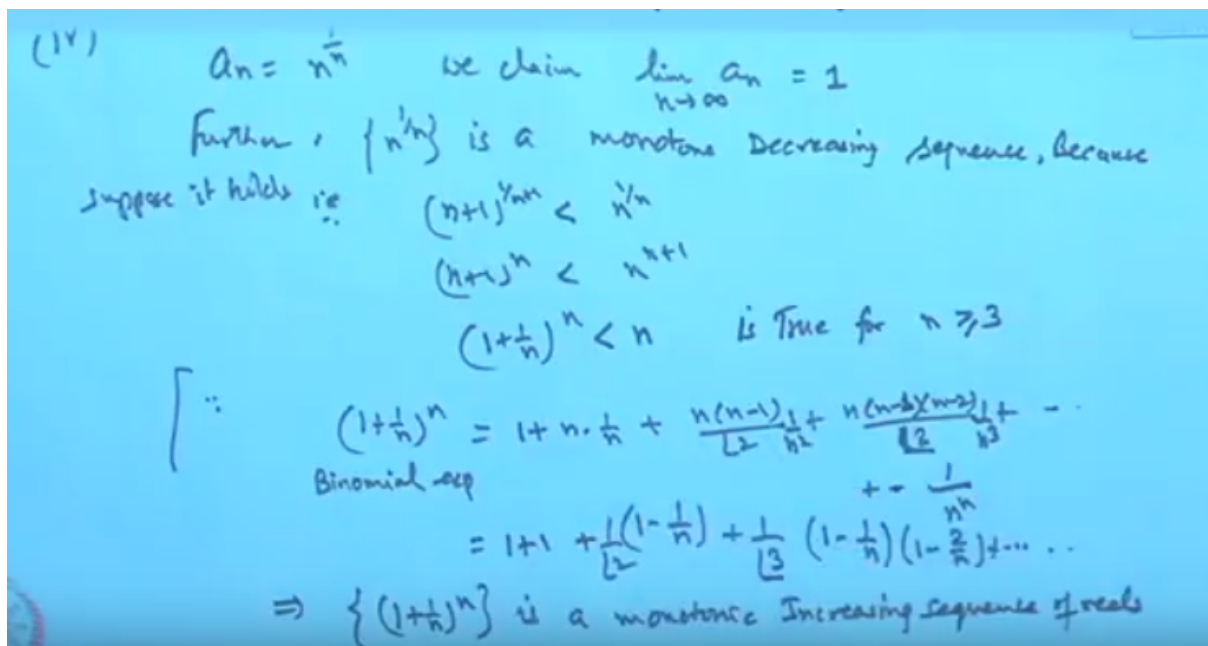 (iv) an = n^{1/n} we claim lim_{n→∞} an = 1
Further, {n^{1/n}} is a monotone Decreasing sequence, Because
suppose it holds ie (n+1)^{1/n+1} < n^{1/n}
(n+1)^n < n^{n+1}
(1+1/n)^n < n is True for n ⩾ 3
[ ∵ (1+1/n)^n = 1 + n·1/n + n(n-1)/⌊2 1/n^2 + n(n-1)(n-2)/⌊2 1/n^3 + - ··
Binomial exp + - 1/n^n
= 1+1 + 1/⌊2 (1-1/n) + 1/⌊3 (1-1/n)(1-2/n)+··· ··
⇒ {(1+1/n)^n} is a monotonic Increasing sequence of reals